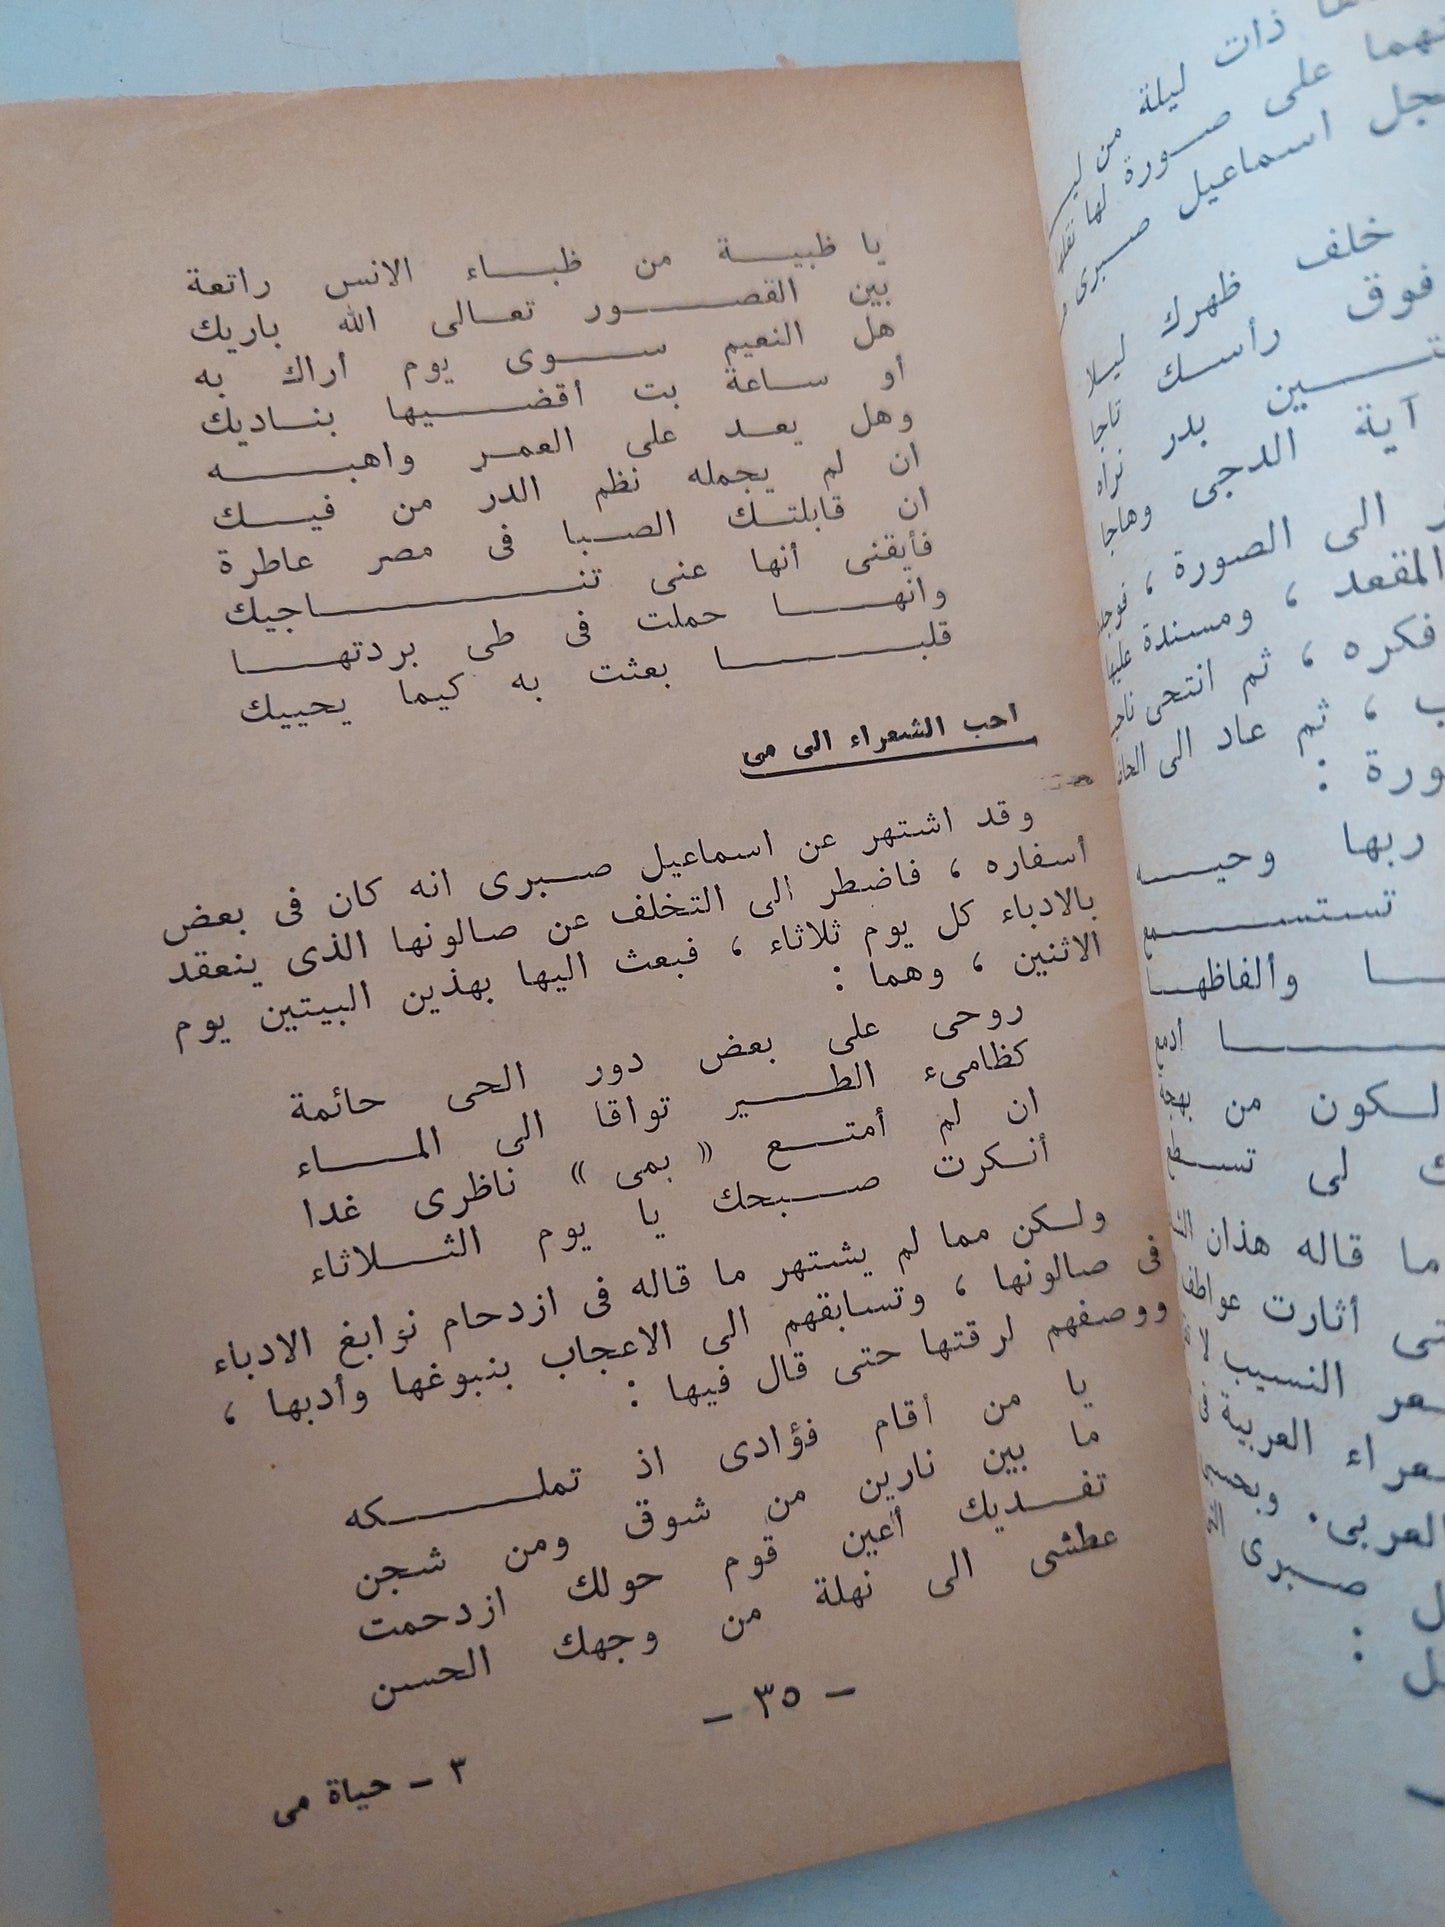 يا ظبية من ظباء الانس راتعة
بين القصور تعالى الله باريك
هل النعيم سوى يوم أراك به
أو ساعة بت أقضيها بناديك
وهل يعد على العمر واهبه
ان لم يجمله نظم الدر من فيك
ان قابلتك الصبا فى مصر عاطرة
فأيقنى أنها عنى تناجيك
وانها حملت فى طى بردتها
قلبا بعثت به كيما يحييك
احب الشعراء الى مى
وقد اشتهر عن اسماعيل صبرى انه كان فى بعض
أسفاره ، فاضطر الى التخلف عن صالونها الذى ينعقد
بالادباء كل يوم ثلاثاء ، فبعث اليها بهذين البيتين يوم
الاثنين ، وهما :
روحى على بعض دور الحى حائمة
كظامىء الطير تواقا الى الماء
ان لم أمتع « بمى » ناظرى غدا
أنكرت صبحك يا يوم الثلاثاء
ولكن مما لم يشتهر ما قاله فى ازدحام نوابغ الادباء
فى صالونها ، وتسابقهم الى الاعجاب بنبوغها وأدبها ،
ووصفهم لرقتها حتى قال فيها :
يا من أقام فؤادى اذ تملكه
ما بين نارين من شوق ومن شجن
تفديك أعين قوم حولك ازدحمت
عطشى الى نهلة من وجهك الحسن
- ٣٥ -
٣ - حياة مى
ذات ليلة من
على صورة لها
اسماعيل صبرى
خلف ظهرك ليلا
فوق رأسك تاجا
بدر نراه
آية الدجى وهاجا
الى الصورة ،
المقعد ، ومسندة عليها
فكره ، ثم انتحى
، ثم عاد الى
:
ربها وحيه
تستسمع
وألفاظها
أدمع
من بهجة
لى تسطع
ما قاله هذان
أثارت عواطف
النسيب
العربية
العربى .
صبرى
: